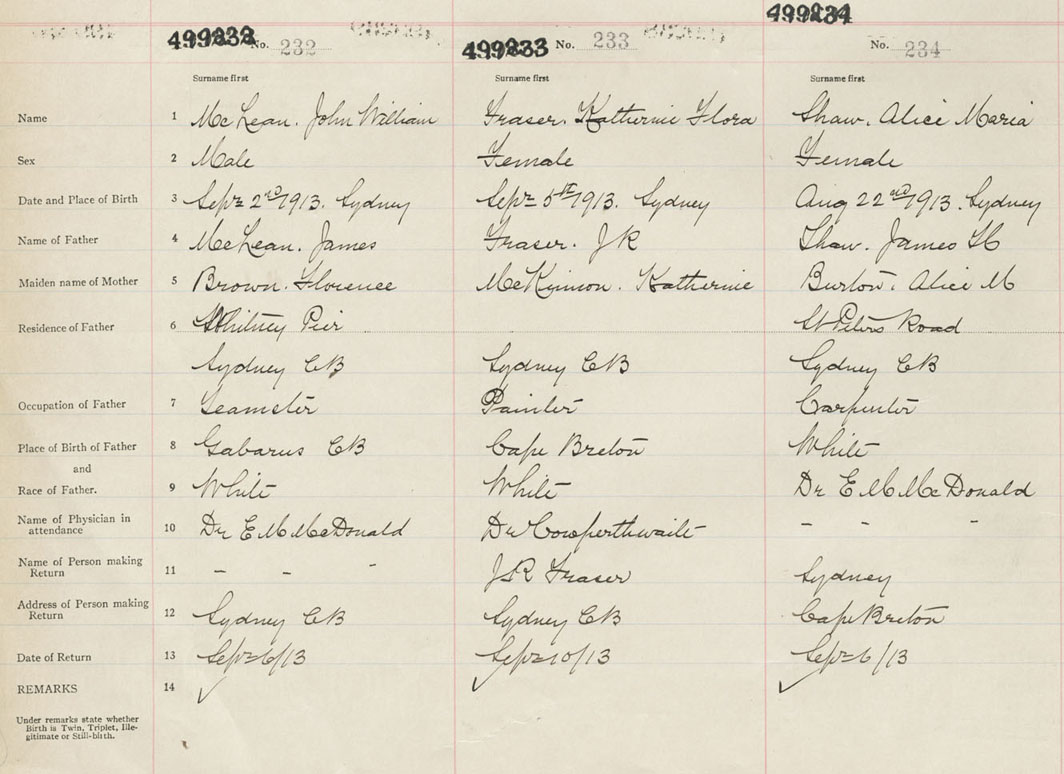 499234
499232 No. 232 499233 No. 233 No. 234
Surname first Surname first Surname first
Name 1 McLean. John William Fraser. Katherine Flora Shaw. Alice Maria
Sex 2 Male Female Female
Date and Place of Birth 3 Sept 2nd 1913. Sydney Sept 5th 1913. Sydney Aug 22nd 1913. Sydney
Name of Father 4 McLean. James Fraser. J R Shaw. James
Maiden name of Mother 5 Brown. Florence McKinnon. Katherine Burton. Alice M
Residence of Father 6 Whitney Pier St Peters Road
Sydney CB Sydney CB Sydney CB
Occupation of Father 7 Teamster Painter Carpenter
Place of Birth of Father 8 Gabarus CB Cape Breton White
and
Race of Father. 9 White White Dr E M McDonald
Name of Physician in 10 Dr E M McDonald Dr Cowperthwaite - - -
attendance
Name of Person making 11 - - - J R Fraser Sydney
Return
Address of Person making 12 Sydney CB Sydney CB Cape Breton
Return
Date of Return 13 Sept 6/13 Sept 10/13 Sept 6/13
REMARKS 14
Under remarks state whether
Birth is Twin, Triplet, Ille-
gitimate or Still-birth.